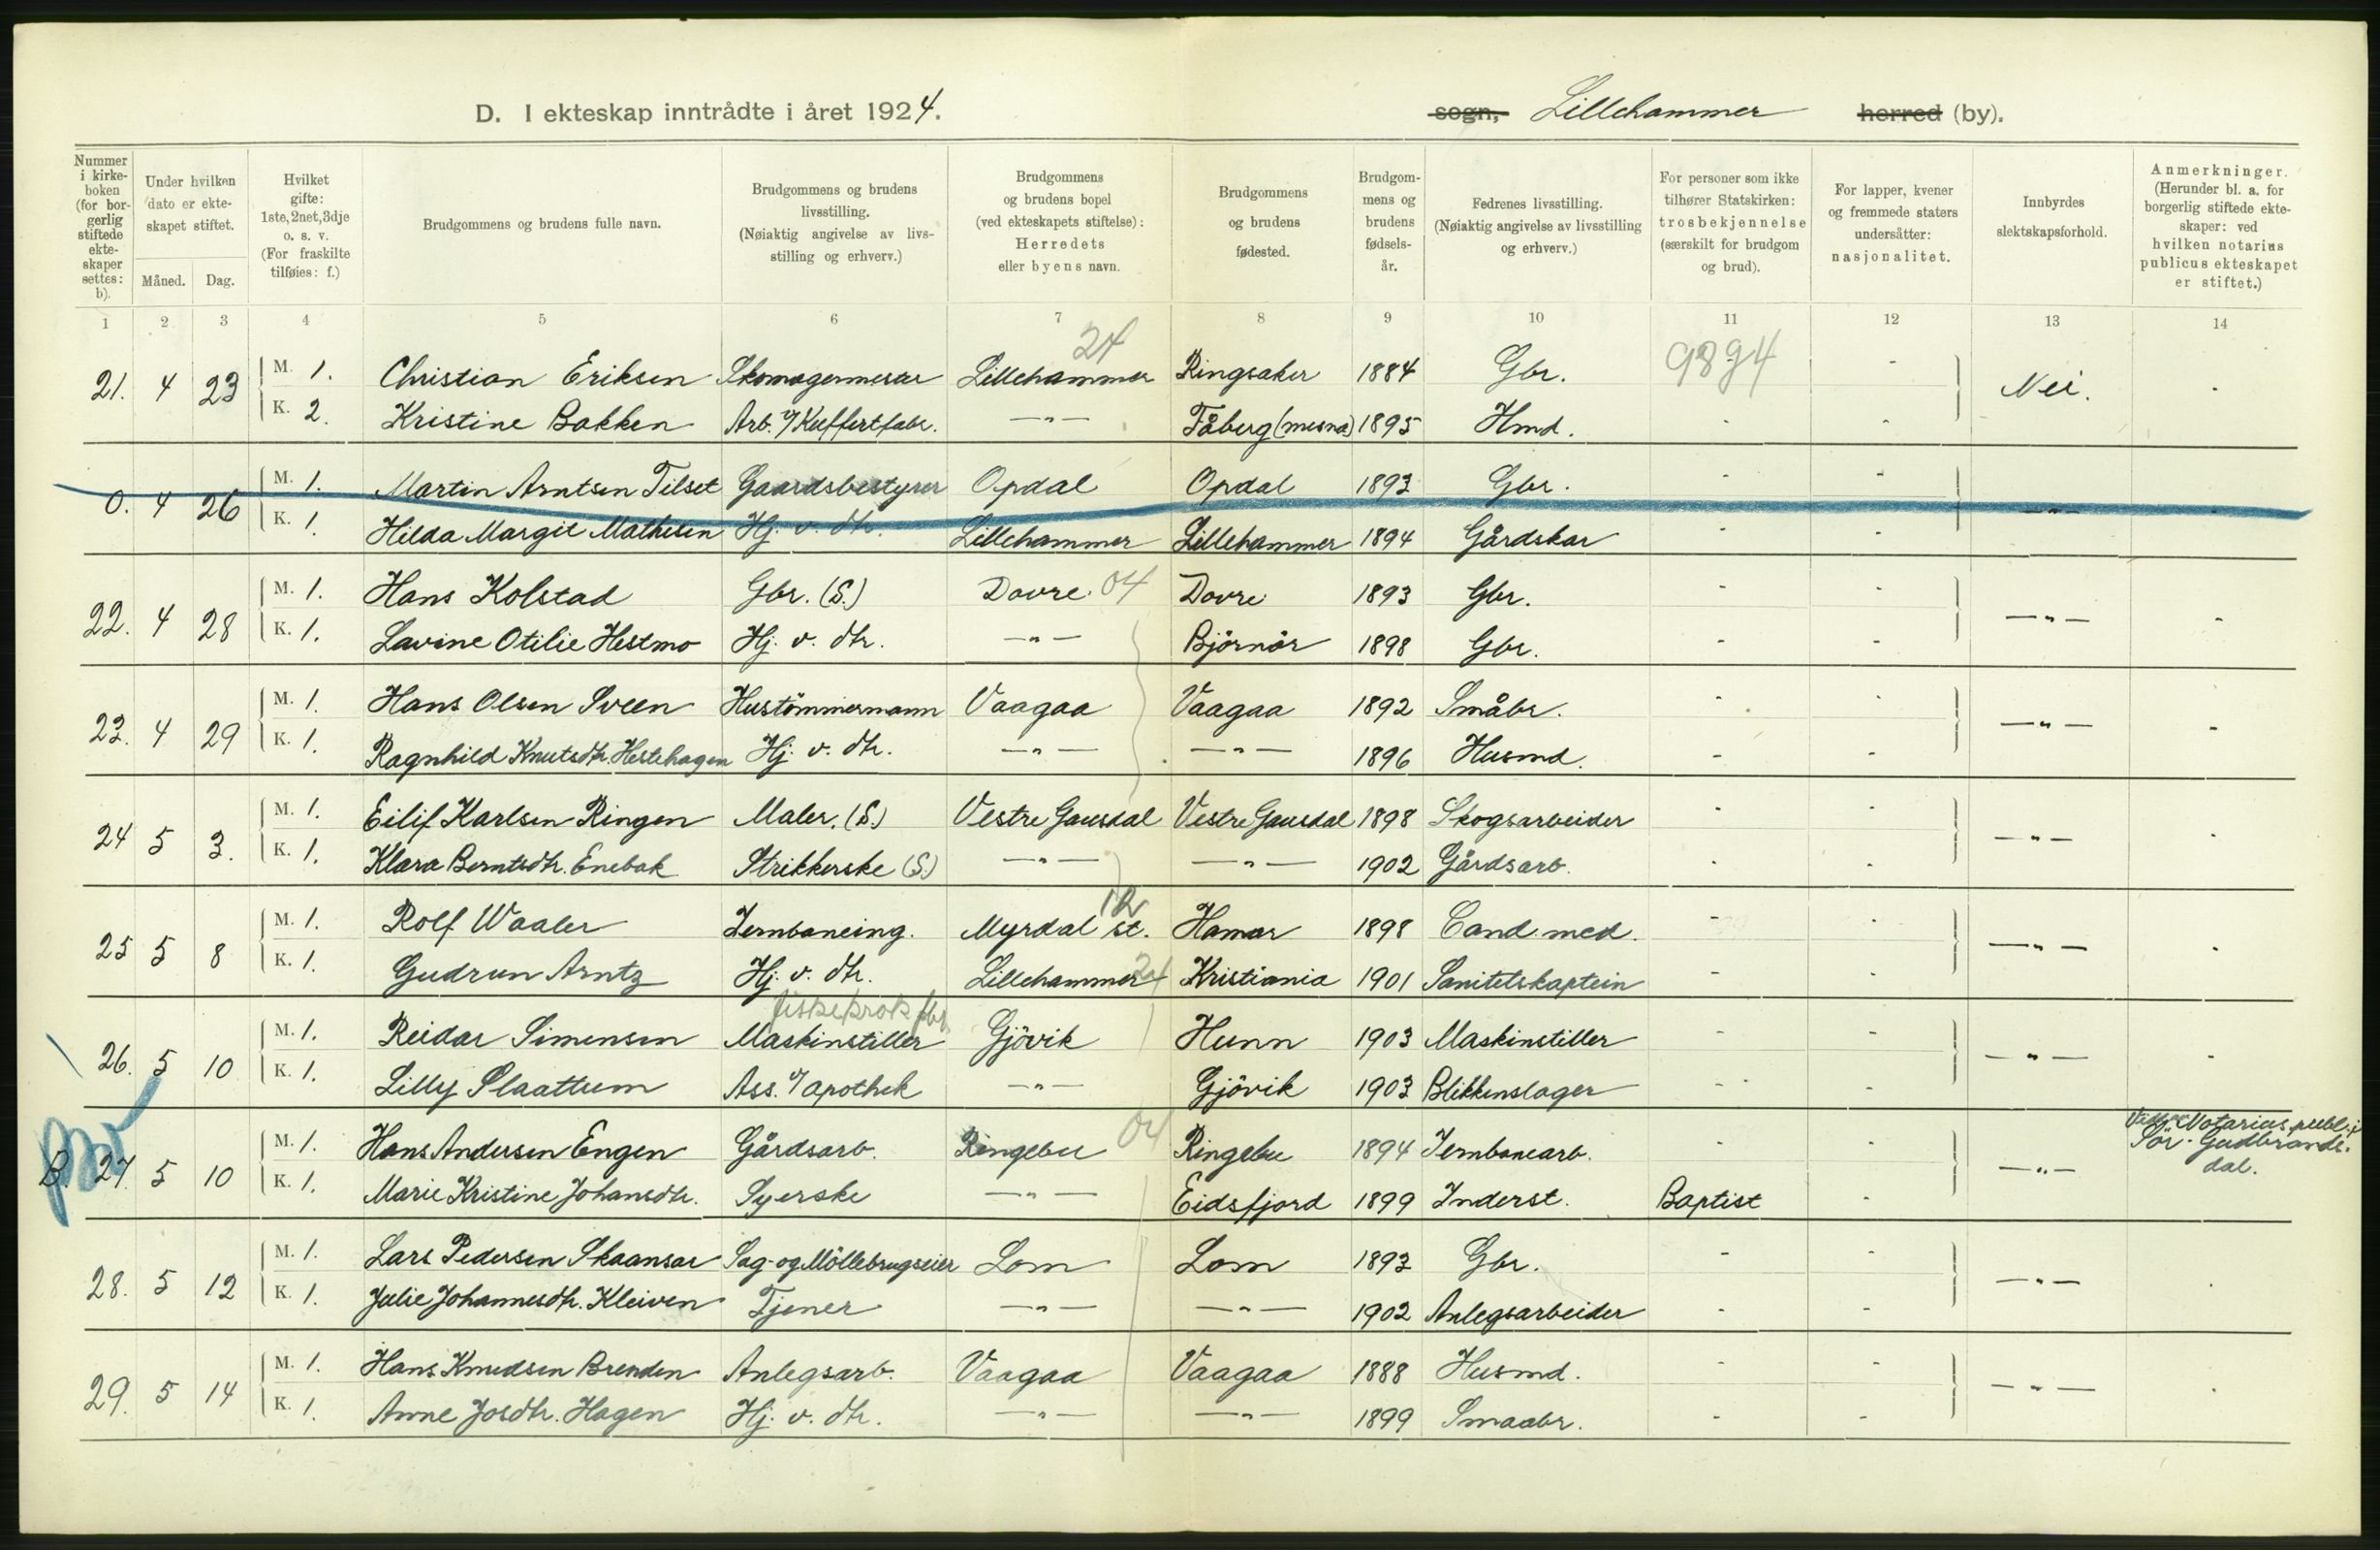 D. I ekteskap inntrådte i året 1924.
sogn, Lillehammer herred (by).
Nummer i kirkeboken (for borgerlig stiftede ekteskaper settes: b).
Under hvilken dato er ekteskapet stiftet.
Måned. Dag.
Hvilket gifte: 1ste, 2net, 3dje o. s. v. (For fraskilte tilføies: f.)
Brudgommens og brudens fulle navn.
Brudgommens og brudens livsstilling. (Nøiaktig angivelse av livsstilling og erhverv.)
Brudgommens og brudens bopel (ved ekteskapets stiftelse): Herredets eller byens navn.
Brudgommens og brudens fødested.
Brudgommens og brudens fødselsår.
Fedrenes livsstilling. (Nøiaktig angivelse av livsstilling og erhverv.)
For personer som ikke tilhører Statskirken: trosbekjennelse (særskilt for brudgom og brud).
For lapper, kvener og fremmede staters undersåtter: nasjonalitet.
Innbyrdes slektskapsforhold.
Anmerkninger. (Herunder bl. a. for borgerlig stiftede ekteskaper: ved hvilken notarius publicus ekteskapet er stiftet.)
1 2 3 4 5 6 7 8 9 10 11 12 13 14
24 9894
21. 4 23 M. 1. Christian Eriksen Skomagermester Lillehammer Ringsaker 1884 Gbr. - - Nei. -
K. 2. Kristine Bakken Arb. v/ Kuffertfabr. —"— Fåberg (mesna) 1895 Hmd. - -
0. 4 26 M. 1. Martin Arntsen Tilset Gaardsbestyrer Opdal Opdal 1893 Gbr. - - —"— -
K. 1. Hilda Margit Mathesen Hj. v. dtr. Lillehammer Lillehammer 1894 Gårdskar - -
22. 4 28 M. 1. Hans Kolstad Gbr. (S.) Dovre 04 Dovre 1893 Gbr. - - —"— -
K. 1. Lavine Otilie Hestmo Hj. v. dtr. —"— Björnör 1898 Gbr. - -
23. 4 29 M. 1. Hans Olsen Sveen Hustömmermann Vaagaa Vaagaa 1892 Småbr. - - —"— -
K. 1. Ragnhild Knutsdtr. Hestehagen Hj. v. dtr. —"— —"— 1896 Husmd. - -
24 5 3. M. 1. Eilif Karlsen Ringen Maler. (S.) Vestre Gausdal Vestre Gausdal 1898 Skogsarbeider - - —"— -
K. 1. Klara Berntsdtr. Enebak Strikkerske (S.) —"— —"— 1902 Gårdsarb. - -
25 5 8 M. 1. Rolf Waaler Jernbaneing. Myrdal st. 12 Hamar 1898 Cand. med. - - —"— -
K. 1. Gudrun Arntz Hj. v. dtr. Lillehammer 24 Kristiania 1901 Sanitetskaptein - -
fiskekrok fbr.
26. 5 10 M. 1. Reidar Simensen Maskinstiller Gjövik Hunn 1903 Maskinstiller - - —"— -
K. 1. Lilly Slaattum Ass. v/ apothek —"— Gjövik 1903 Blikkenslager - -
B. 27. 5 10 M. 1. Hans Andersen Engen Gårdsarb. Ringebu 04 Ringebu 1894 Jernbanearb. - - —"— Ved Notarius publ. i Sör-Gudbrandsdal.
K. 1. Marie Kristine Johansdtr. Syerske —"— Eidsfjord 1899 Inderst. Baptist -
28. 5 12 M. 1. Lars Pedersen Skaansar Sag- og Möllebrugseier Lom Lom 1893 Gbr. - - —"— -
K. 1. Julie Johannesdtr. Kleiven Tjener —"— —"— 1902 Anlegsarbeider - -
29. 5 14 M. 1. Hans Knudsen Brenden Anlegsarb. Vaagaa Vaagaa 1888 Husmd. - - —"— -
K. 1. Anne Josdtr. Hagen Hj. v. dtr. —"— —"— 1899 Smaabr. - -